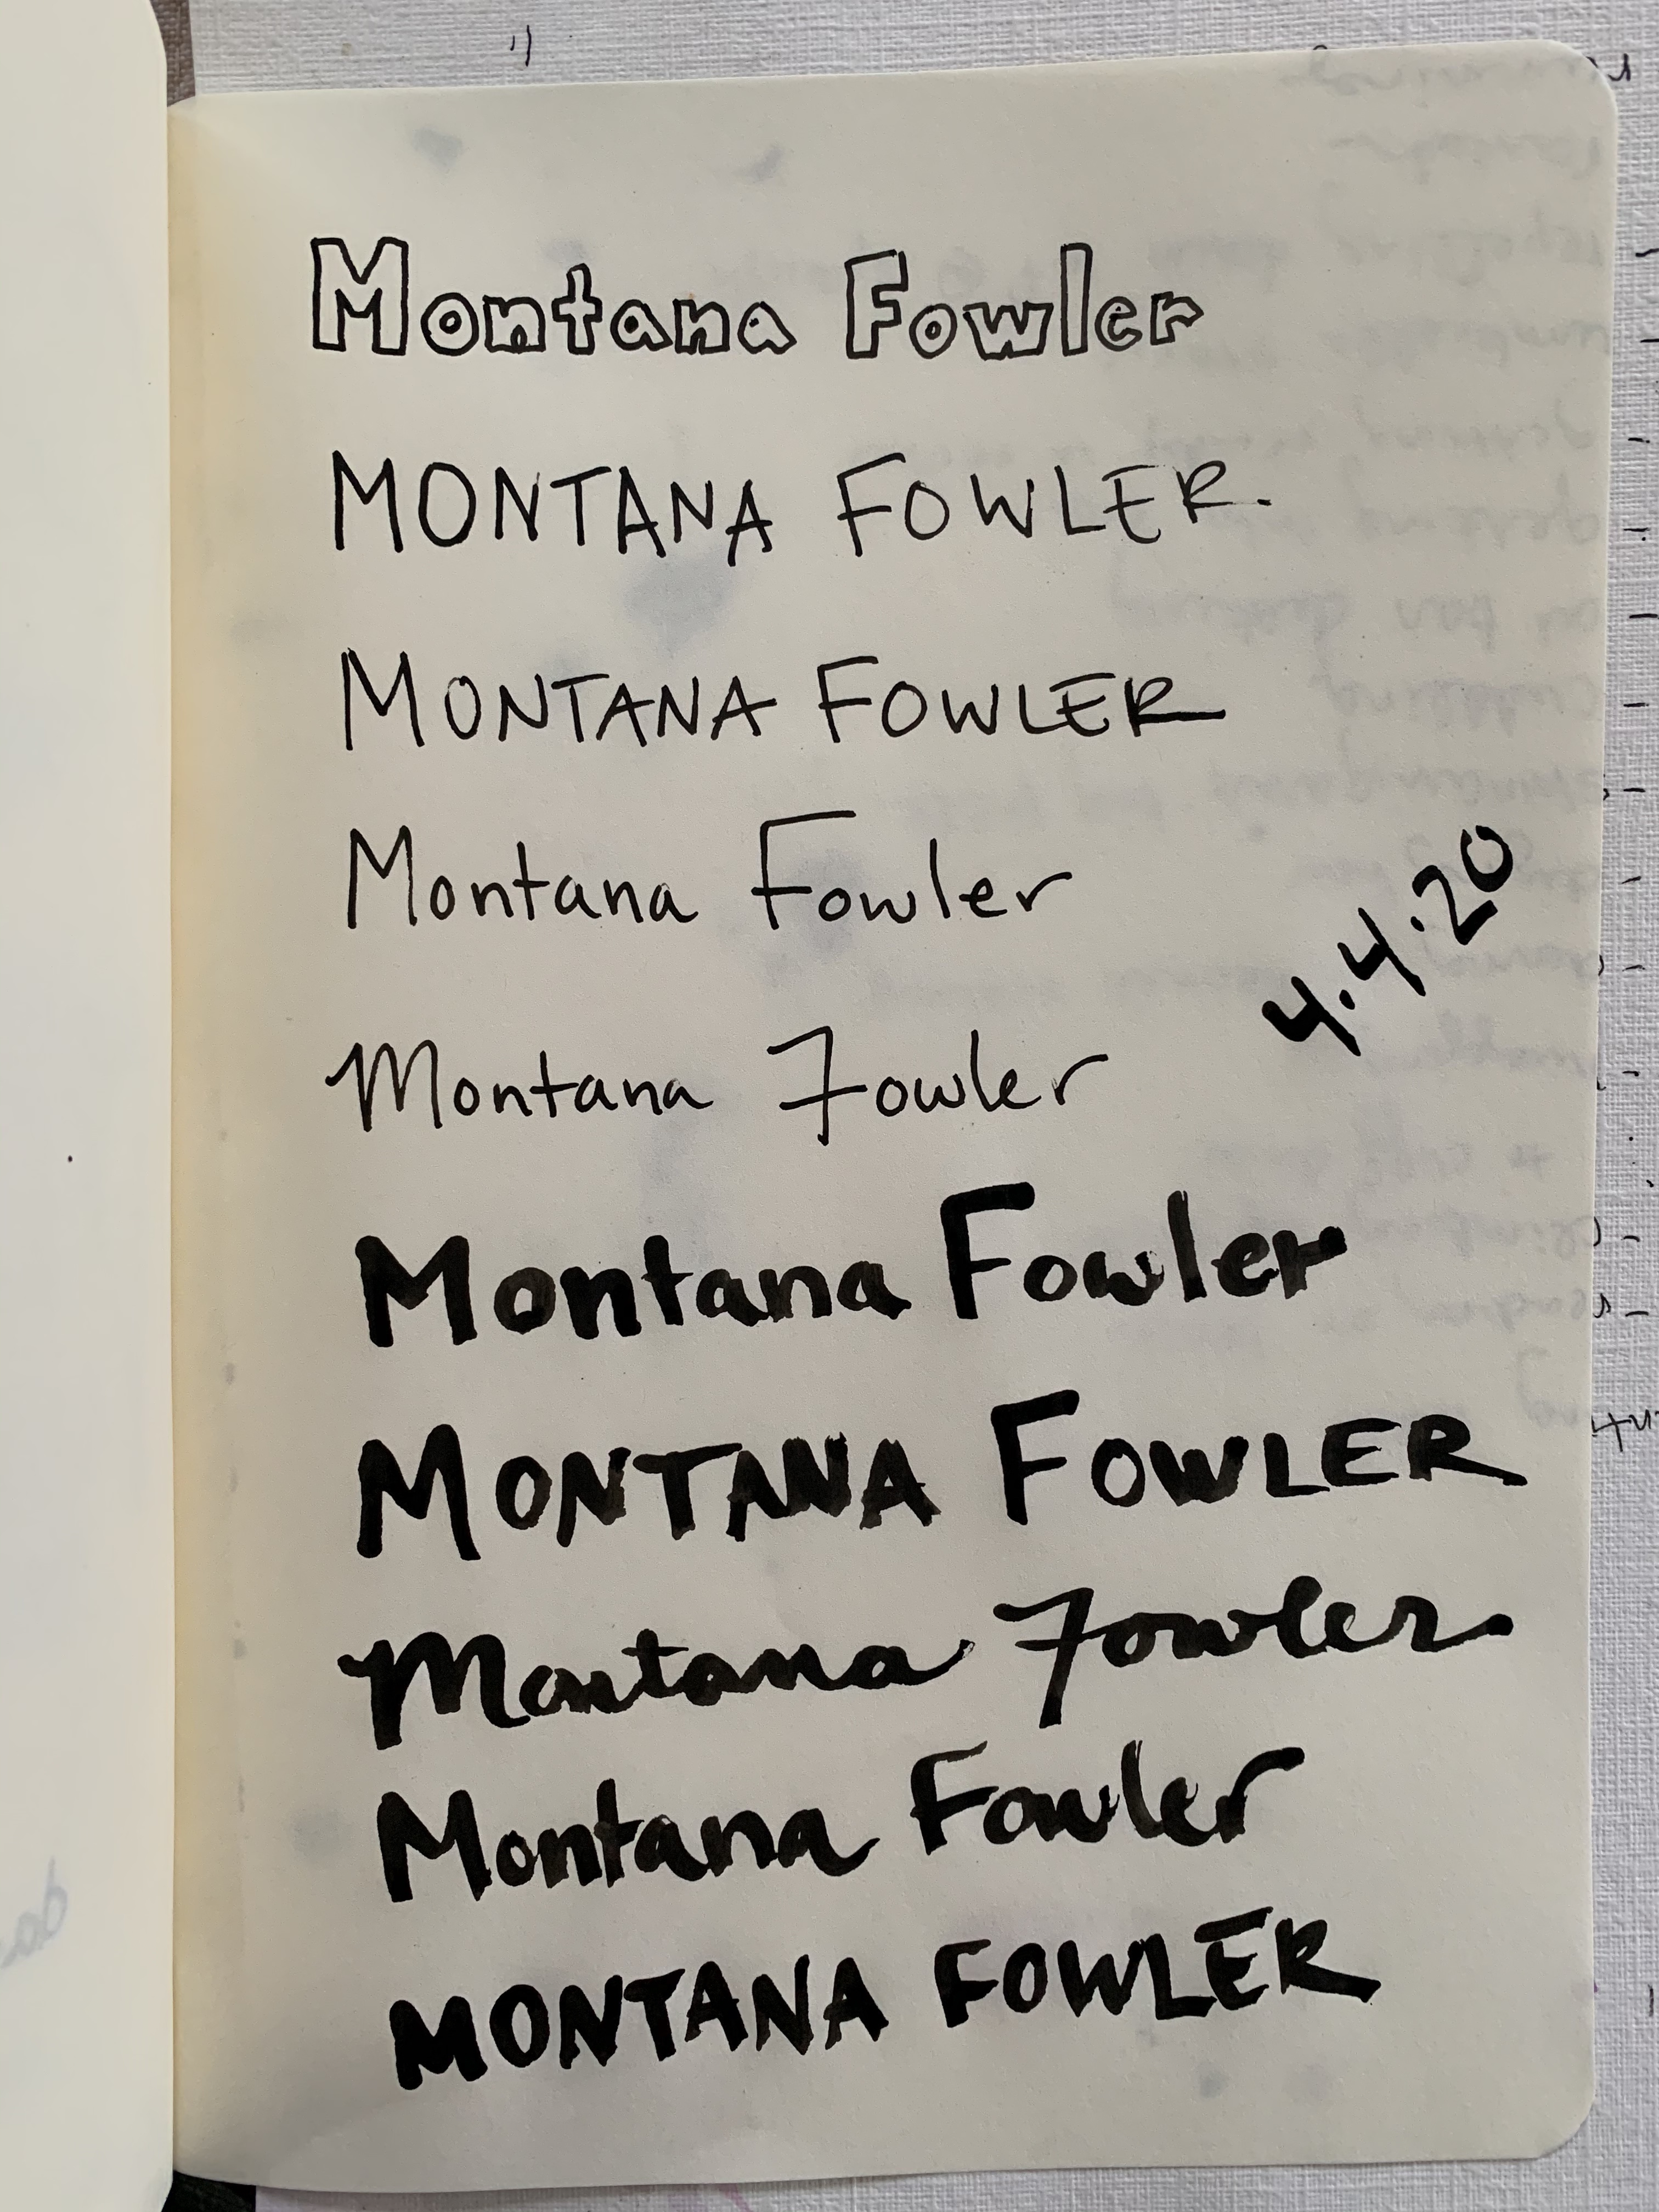 Montana Fowler
MONTANA FOWLER.
MONTANA FOWLER
Montana Fowler
4.4.20
Montana Fowler
Montana Fowler
MONTANA FOWLER
Montana Fowler
Montana Fowler
MONTANA FOWLER